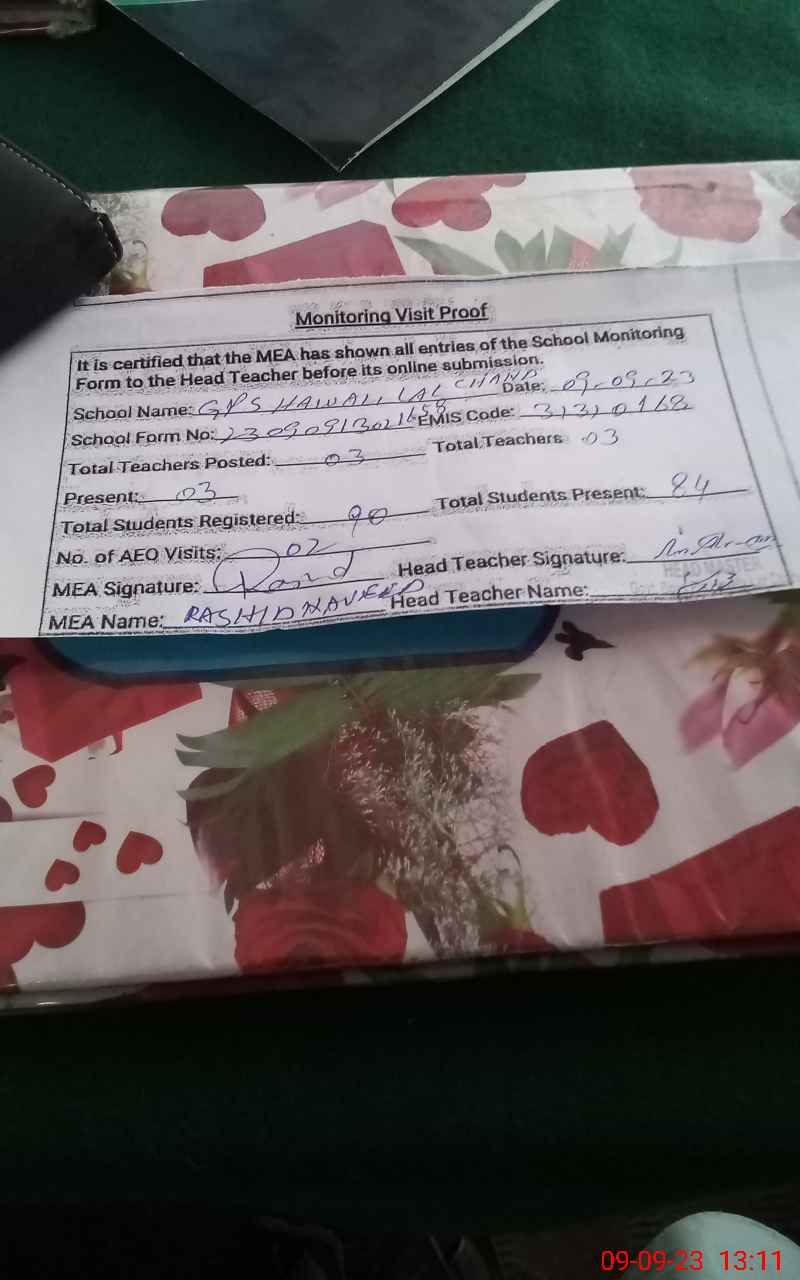 Monitoring Visit Proof
It is certified that the MEA has shown all entries of the School Monitoring
Form to the Head Teacher before its online submission.
School Name: GPS HAWALI LAL CHAND Date: 09.09.23
School Form No: EMIS Code: 31310168
Total Teachers Posted: 03 Total Teachers 03
Present: 03
Total Students Registered: 90 Total Students Present: 84
No. of AEO Visits: 02
MEA Signature: Head Teacher Signature:
HEAD MASTER
MEA Name: RASHID NAVEED Head Teacher Name:
09-09-23 13:11